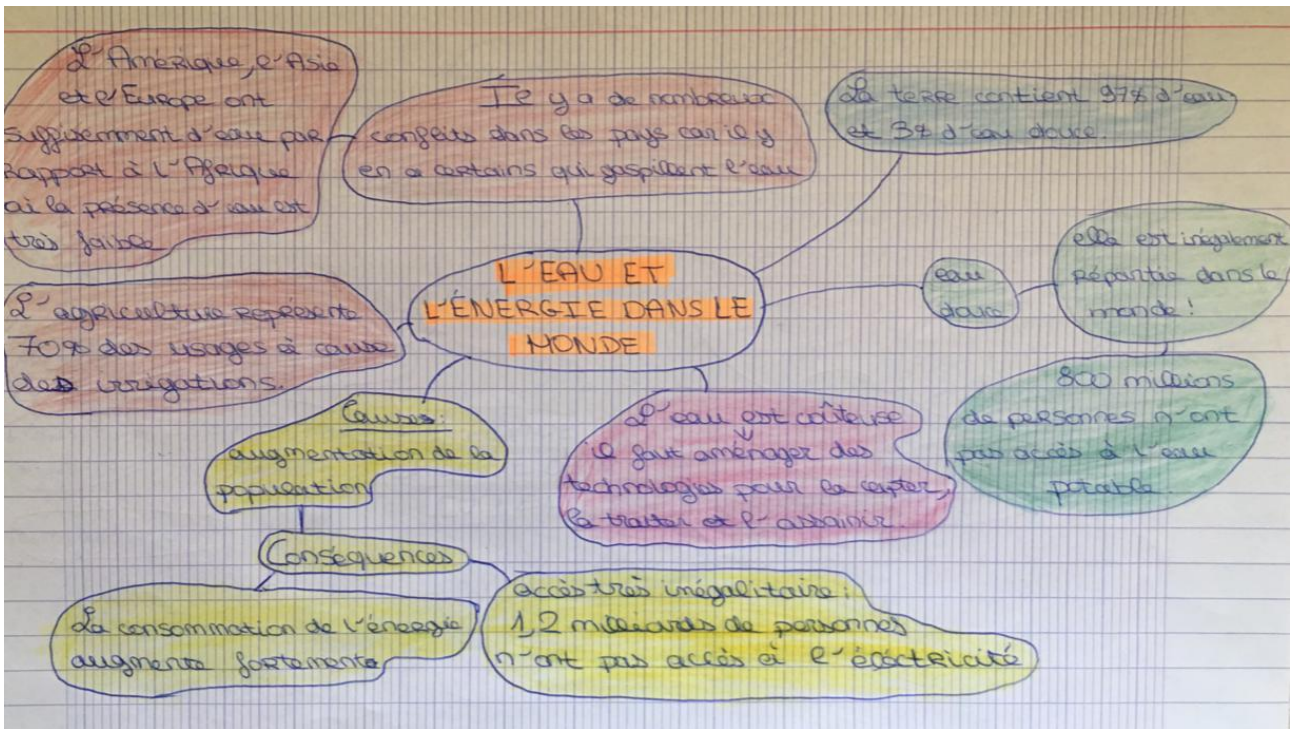 L'Amérique, l'Asie
et l'Europe ont
suffisemment d'eau par
rapport à l'Afrique
où la présence d'eau est
très faible
Il y a de nombreux
conflits dans les pays car il y
en a certains qui gaspillent l'eau
La terre contient 97% d'eau
et 3% d'eau douce.
L'EAU ET
L'ÉNERGIE DANS LE
MONDE
eau
douce
elle est inégalement
répartie dans le
monde !
800 millions
de personnes n'ont
pas accès à l'eau
potable.
L'agriculture représente
70% des usages à cause
des irrigations.
Causes :
augmentation de la
population
L'eau est coûteuse
il faut aménager des
technologies pour la capter,
la traiter et l'assainir.
Conséquences
La consommation de l'énergie
augmente fortemente
accès très inégalitaire :
1,2 milliards de personnes
n'ont pas accès à l'éléctricité